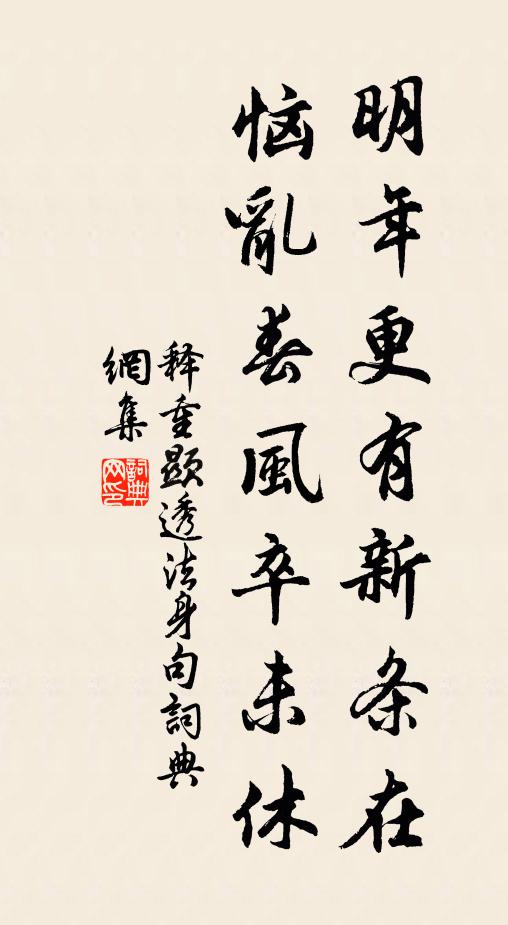 明年更有新条在
恼亂春風卒未休
释重顯透法身句詞典
網集
詞典網印